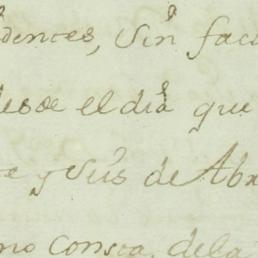 dentes, sin facu
desde el dia que
te y seis de Abr
no consta, dela